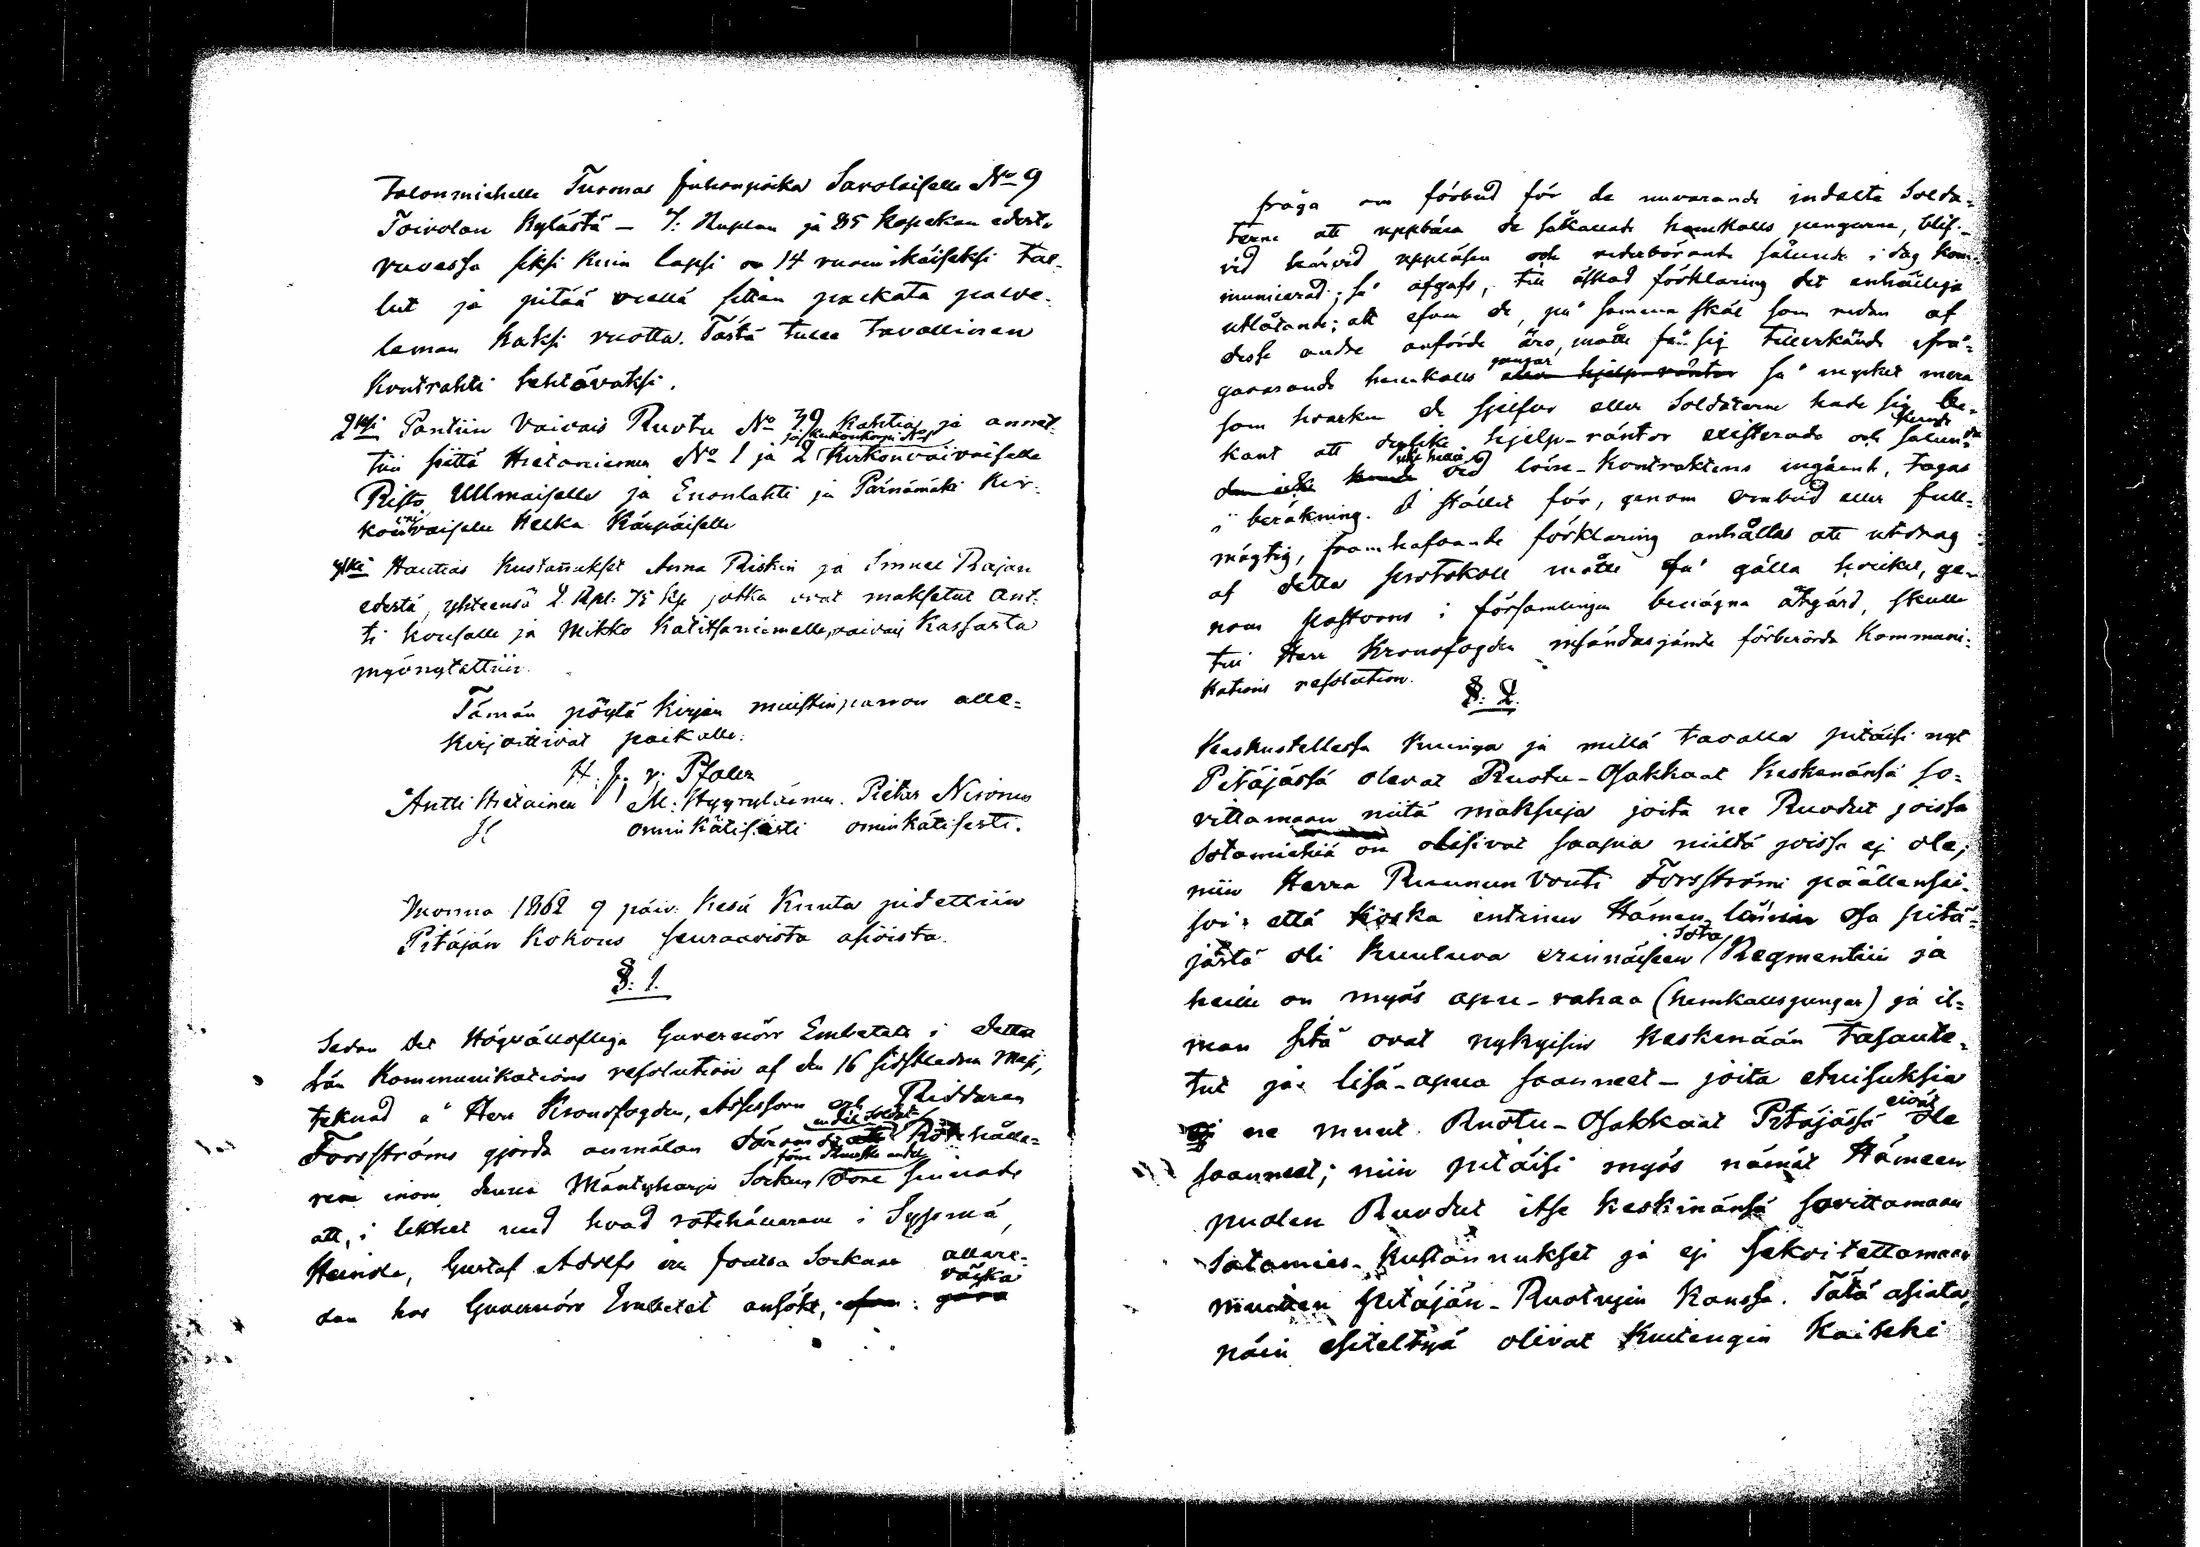 Talonmiehelle Tuomas Juhonpoika Savolaiselle No 9
Toivolan Kylästä – 7: Ruplan ja 85 Kopekan edest.
vuvessa siksi kuin lapsi on 14 vuoniskäiseksi tul-
lut ja pitää vielä sitten paikata palve-
leman kaksi vuotta. Tästä tulee tavallinen
Kontrahti tehtäväksi.
2ksi Pantiin Vaivais Ruotu No 39 kahtia ja annet-
tiin siittä Hietaniemen No 1 ja 2 Kirkonvaivaiselle
Risto Ullmaiselle ja Enonlahti ja Pärnämäki Kir-
konvaivaiselle Helka Kärpäiselle
Hautias Kustannukset Anna Riskin ja Immel Rajan
edestä, yhteensä 2 Rpl. 75 Kp jotka ovat maksetut Ant-
ti Housalle ja Mikko Kalitsaniemelle, vaivais Kassasta
myönytettiin.
Tämän pöytä Kirjan muistinpanon alle-
kirjoittivat paikalle:
H. J. v: Pfaler
Antti Hietainen M: Hyyryläinen. Pietar Nironen
ominkätisesti ominkätisesti.
Vuonna 1862 9 päiv. Kesä Kuuta pidettiin
Pitäjän Kokous seuraavista asioista.
§: 1.
Sedan det Högvälloflige Guvernörs Embetets i detta
län Kommunikations resolution af den 16 sidstledne Maji,
teknad å Herr Kronofogden, Assessoren och Riddaren
Forsströms gjorda anmälan därom att Rotehålla-
rene inom denna Mäntyharju Socken sinnade
att, i likhet med hvad rotehållarene i Sysmä,
Heinola, Gustaf Adolfs och Joutsa Socknar allare-
dan hos Guvernörs Embetet ansökt, väcka
fråga om förbud för de nuvarande indelta Solda-
terne att uppbära de såkallade hemkalls pengarne, blif-
vid härvid uppläsen och vederbörande sålunda i dag kom-
municerad; så afgafs, till äskad förklaring det enhälliga
utlåtande; att efom de, på samma skäl som redan af
desse andre anförde äro, måtte få sig tillerkände ifrå-
gavarande hemkalls pengar så mycket mera
som hvarken de sjelfve eller Soldaterne hade sig be-
kant att dylika hjelp-räntor existerade och sålunda
vid löne-Kontraktens ingående, tagas
i beräkning. I stället för, genom ombud eller full-
mägtig, framhafvande förklaring anhålles att utdrag
af detta protokoll måtte få gälla hvilket, ge-
nom pastorns i församlingen benägna åtgärd, skulle
till Herr Kronofogden insändas jämte förberörde Kommuni-
kations resolution.
§: 2.
Keskustellessa kuinga ja millä tavalla pitäisi nyt
Pitäjässä olevat Ruotu-Osakkaat Keskenänsä so-
vittamaan niitä maksuja joita ne Ruodut joissa
Sotamiehiä on olisivat saapia niiltä joissa ej ole;
niin Herra Ruunun Vouti Forsströmi päällensei-
soi: että koska entinen Hämen läänin osa pitä-
jästä oli kuuluva erinnäiseen Sota Regmentiin ja
heille on myös apu-rahaa (hemkallspengar) ja il-
man sitä ovat nykyisin keskenään tasaute-
tut ja lisä-apua saanneet – joita etuisuksia
ne muut Ruotu-Osakkaat Pitäjässä eivät ole
saanneet; niin pitäisi myös nämät Hämeen
puolen Ruodut itse keskinänsä sovittamaan
Sotamies-kustannukset ja ej sekoitettamaan
muitten pitäjän-Ruotujen kanssa. Tätä asiata,
näin esiteltyä olivat kuitengin kaikki